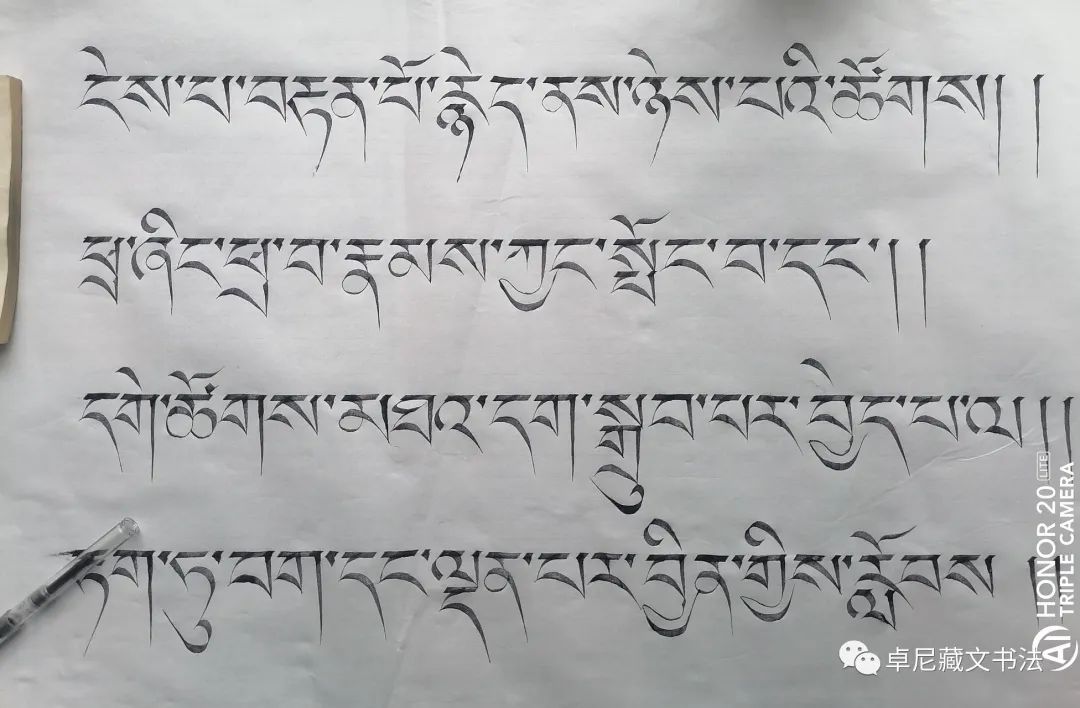 ངེས་པ་བརྟན་པོ་རྙེད་ནས་ཉེས་པའི་ཚོགས། །
ཕྲ་ཞིང་ཕྲ་བ་རྣམས་ཀྱང་སྤོང་བ་དང་། །
དགེ་ཚོགས་མཐའ་དག་སྒྲུབ་པར་བྱེད་པ་ལ། །
རྟག་ཏུ་བག་དང་ལྡན་པར་བྱིན་གྱིས་རློབས །།
HONOR 20 LITE
AI TRIPLE CAMERA
卓尼藏文书法